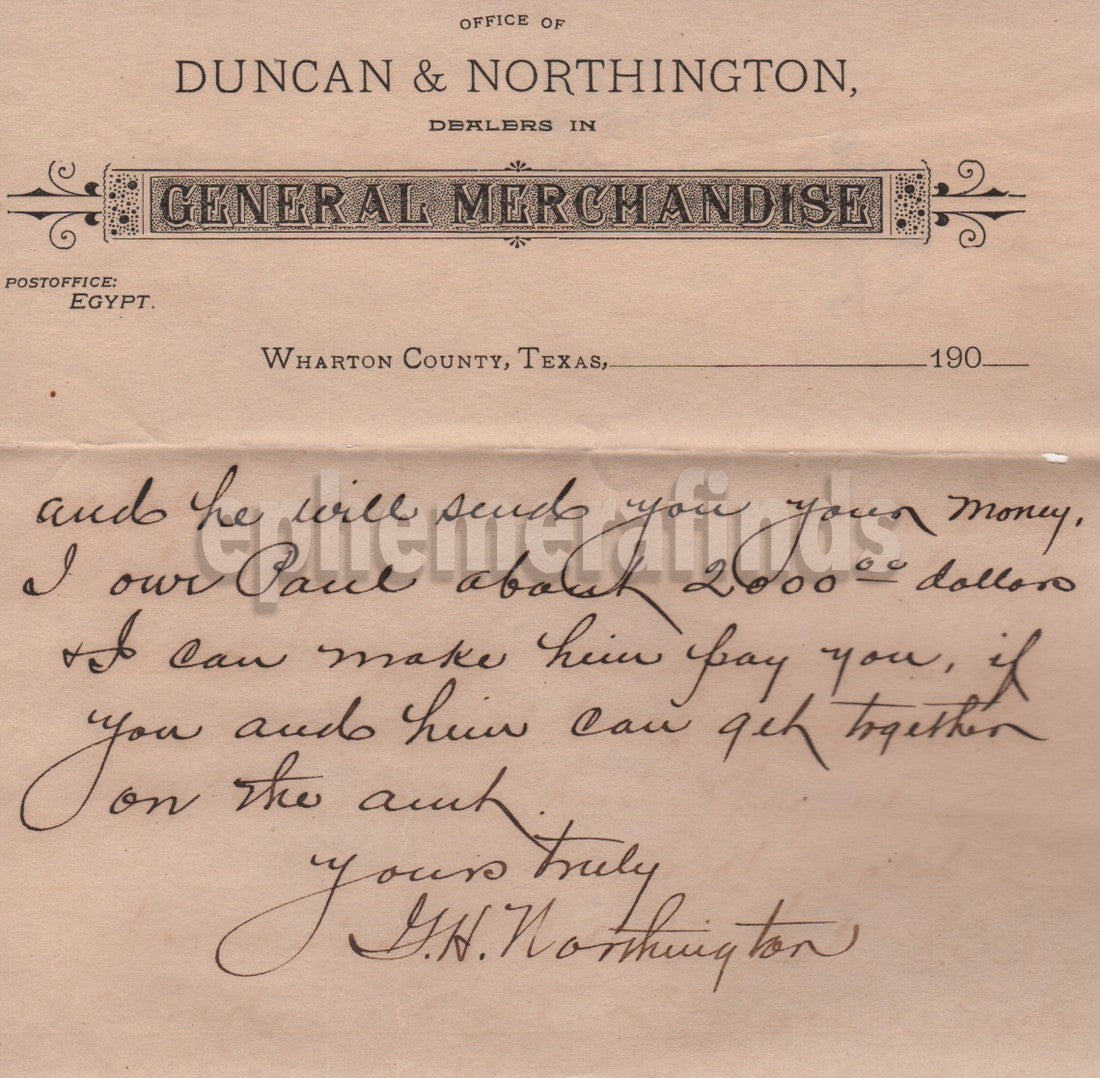 OFFICE OF
DUNCAN & NORTHINGTON,
DEALERS IN
GENERAL MERCHANDISE
POSTOFFICE:
EGYPT.
WHARTON COUNTY, TEXAS, 190
and he will send you your money.
I owe Paul about 2000 00 dollars
& I can make him pay you, if
you and him can get together
on the amt.
Yours truly
G.H. Northington
ephemerafinds